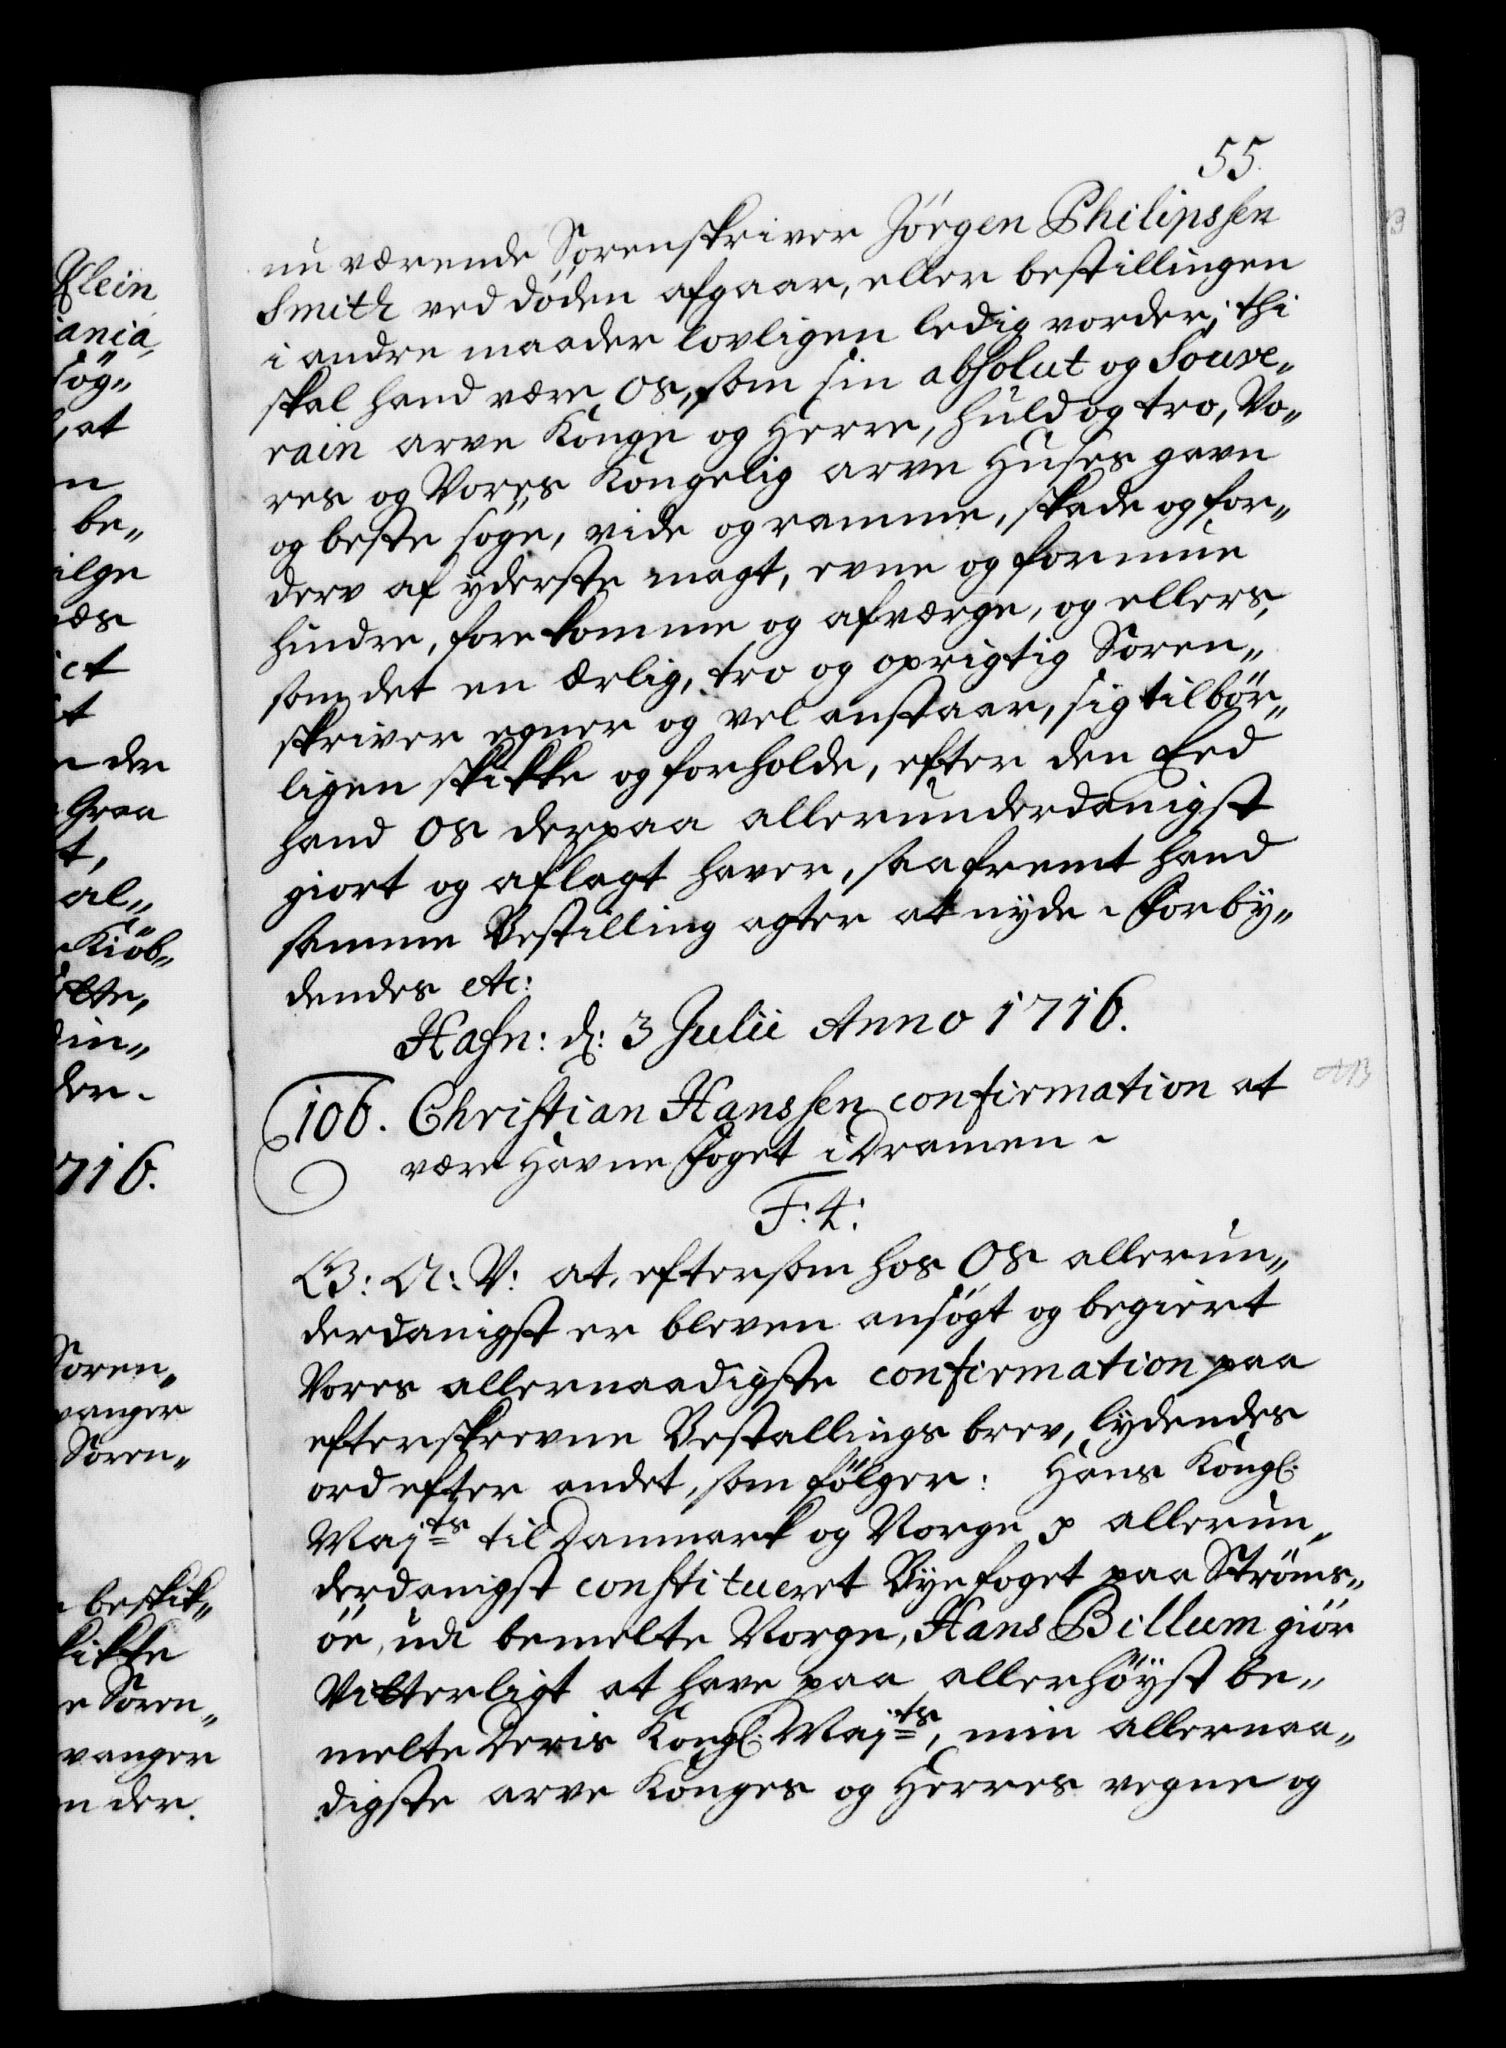 55.
nu værende Sorenskriver Jörgen Philipssen
Smith ved döden afgaar, eller bestillingen
i andre maader lovligen ledig vorder; thi
skal hand være Os, som sin absolut og Souve„
rain arve Konge og Herre, huld og tro, Vo„
res og Vores Kongelig arve Huses gavn
og beste söge, vide og ramme, skade og for„
derv af yderste magt, evne og formue
hindre, forekomme og afværge, og ellers,
som det en ærlig, tro og oprigtig Soren„
skriver egner og vel anstaar, sig tilbör„
ligen skikke og forholde, efter den Eed
hand Os derpaa allerunderdanigst
giort og aflagt haver, saafremt hand
samme Bestilling agter at nyde. Forby„
dendes etc:
Hafn: d: 3 Julii Anno 1716.
106. Christian Hanssen confirmation at
være Havne Foget i Dramen.
F: 4:
G: A: V: at, eftersom hos Os allerun„
derdanigst er bleven ansögt og begiert
Vores allernaadigste confirmation paa
efterskrevne Bestallings brev, lydendes
ord efter andet, som fölger: Hans Kongl.
Majts til Danmark og Norge p allerun„
derdanigst constitueret Byefoget paa Ströms„
öe, udi bemelte Norge, Hans Billum giör
Vitterligt at have paa allerhöyst be„
melte Deris Kongl. Majts, min allernaa„
digste arve Konges og Herres vegne og
Klein
iania,
sög„
at
n
be„
ilge
ct
der
Graa
t,
al„
Kiöb„
lte,
din„
der.
716.
Soren„
vanger
Soren„
beskik„
kikke
e Soren„
vanger
n der.